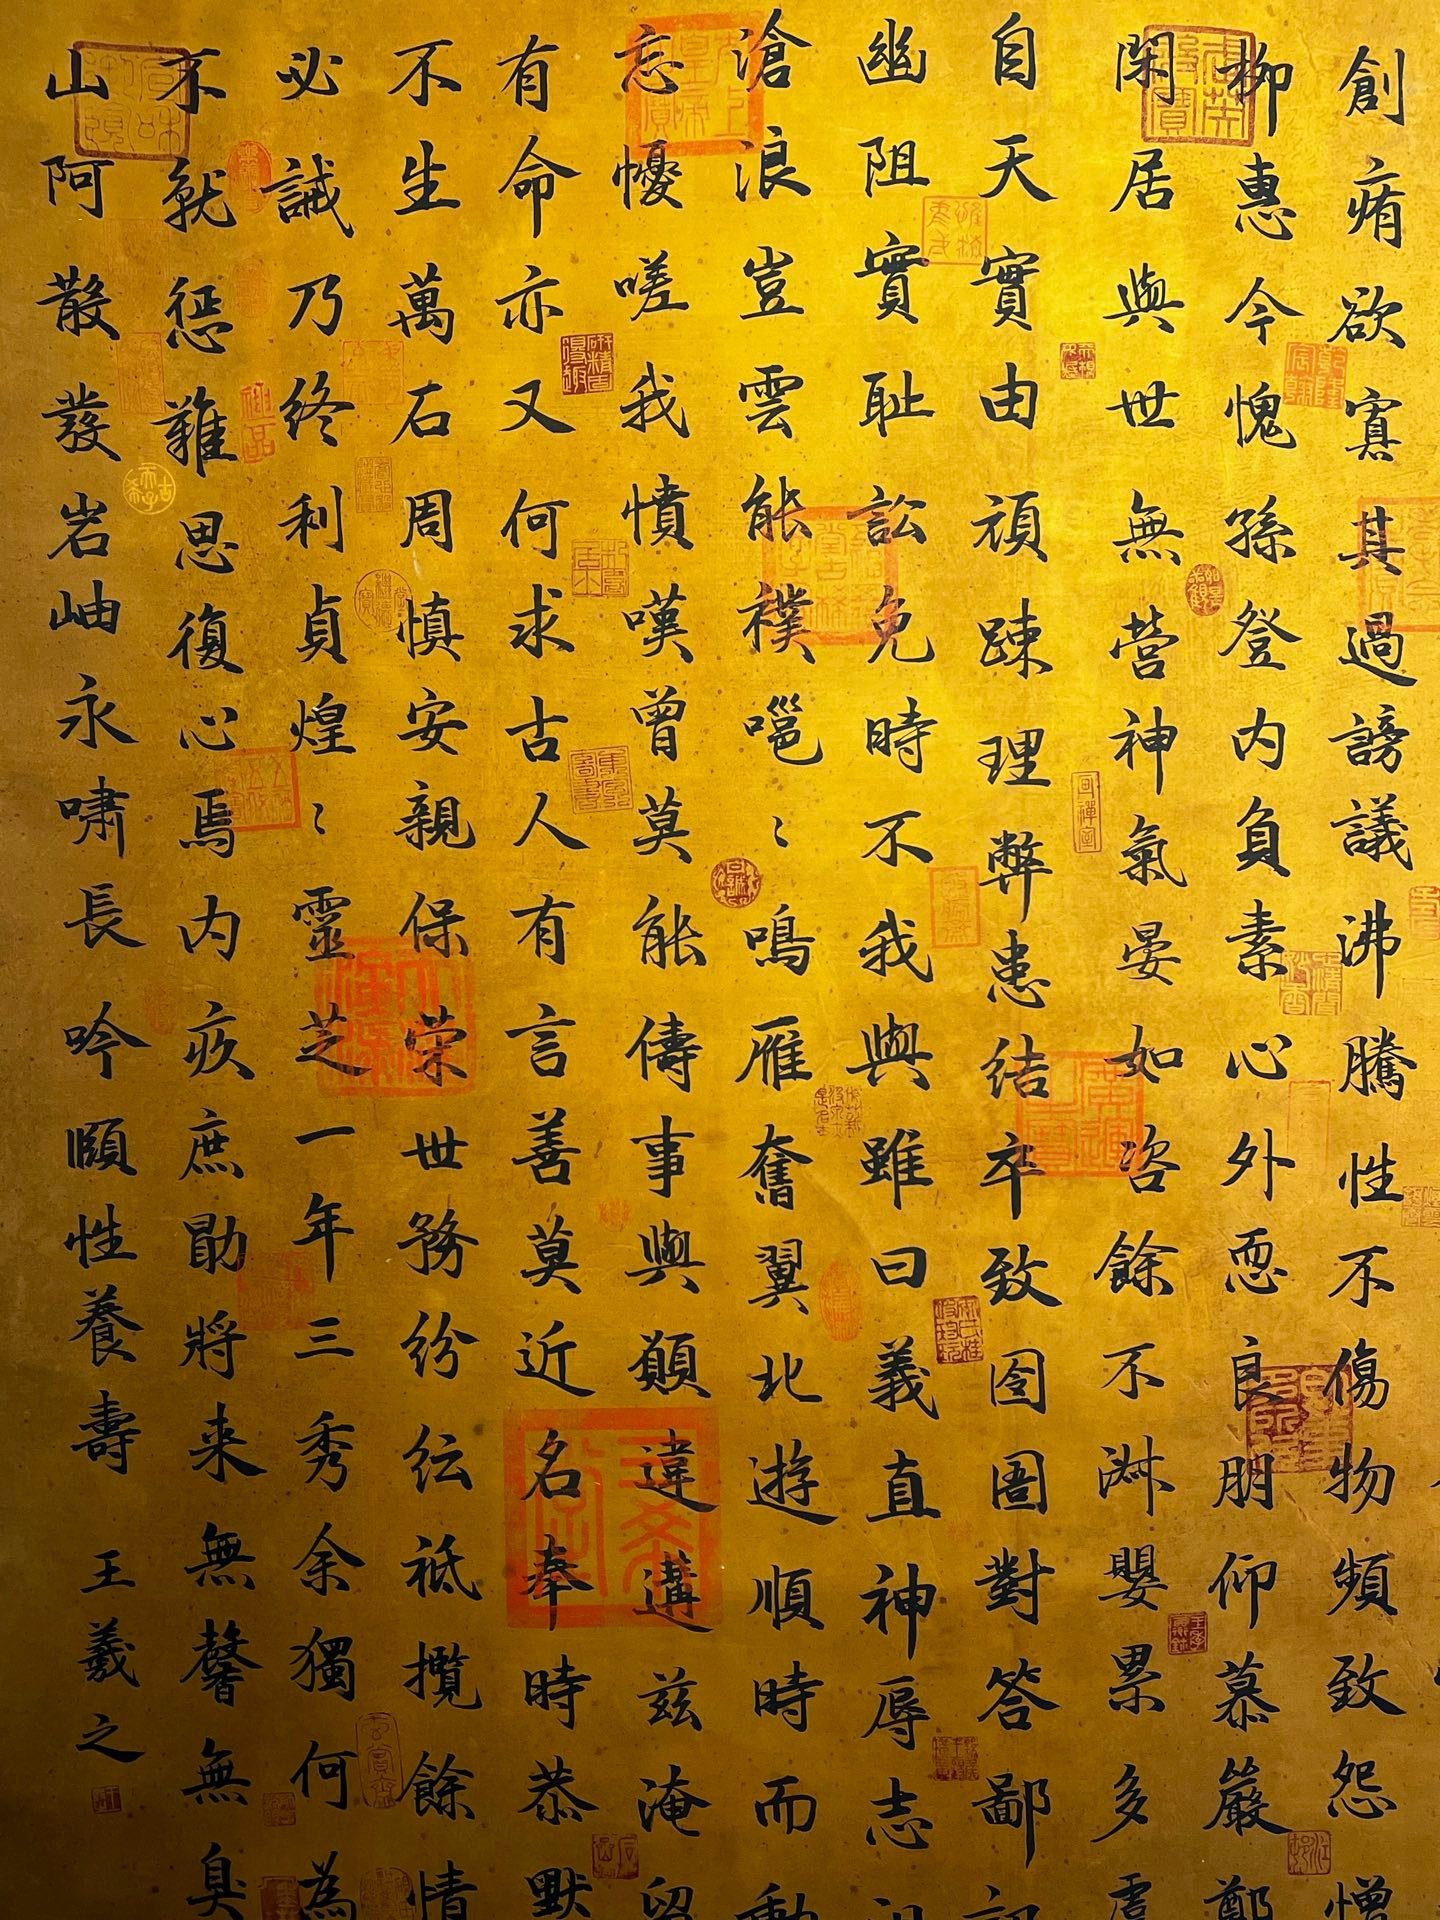 創痏欲寡其過謗議沸騰性不傷物頻致怨憎
柳惠今愧孫登内負素心外恧良朋仰慕嚴鄭
閑居與世無營神氣晏如咨余不淋嬰累多虞
自天實由頑疎理弊患結卒致囹圄對答鄙訊
幽阻實耻訟免時不我與雖曰義直神辱志沮
滄浪豈雲能襥嗈〻鳴雁奮翼北遊順時而動
忘懮嗟我憤嘆曾莫能儔事與顛違遘兹淹留
有命亦又何求古人有言善莫近名奉時恭默
不生萬石周慎安親保荣世務紛紜祇攬餘情
必誡乃終利貞煌〻靈芝一年三秀余獨何為
不就惩難思復心焉内疚庶勖將来無馨無臭
山阿散發岩岫永嘯長吟頤性養壽 王羲之